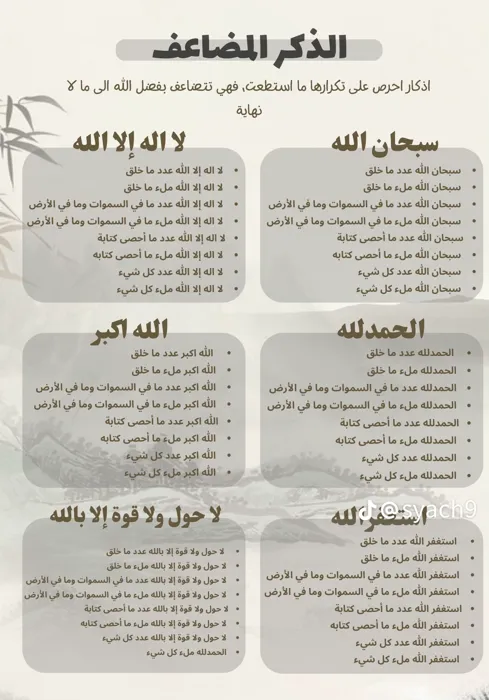 الذكر المضاعف
اذكار احرص على تكرارها ما استطعت، فهي تتضاعف بفضل الله الى ما لا
نهاية
سبحان الله
سبحان الله عدد ما خلق
سبحان الله ملء ما خلق
سبحان الله عدد ما في السموات وما في الأرض
سبحان الله ملء ما في السموات وما في الأرض
سبحان الله عدد ما أحصى كتابة
سبحان الله ملء ما أحصى كتابه
سبحان الله عدد كل شيء
سبحان الله ملء كل شيء
لا اله إلا الله
لا اله إلا الله عدد ما خلق
لا اله إلا الله ملء ما خلق
لا اله إلا الله عدد ما في السموات وما في الأرض
لا اله إلا الله ملء ما في السموات وما في الأرض
لا اله إلا الله عدد ما أحصى كتابة
لا اله إلا الله ملء ما أحصى كتابه
لا اله إلا الله عدد كل شيء
لا اله إلا الله ملء كل شيء
الحمدلله
الحمدلله عدد ما خلق
الحمدلله ملء ما خلق
الحمدلله عدد ما في السموات وما في الأرض
الحمدلله ملء ما في السموات وما في الأرض
الحمدلله عدد ما أحصى كتابة
الحمدلله ملء ما أحصى كتابه
الحمدلله عدد كل شيء
الحمدلله ملء كل شيء
الله اكبر
الله اكبر عدد ما خلق
الله اكبر ملء ما خلق
الله اكبر عدد ما في السموات وما في الأرض
الله اكبر ملء ما في السموات وما في الأرض
الله اكبر عدد ما أحصى كتابة
الله اكبر ملء ما أحصى كتابه
الله اكبر عدد كل شيء
الله اكبر ملء كل شيء
استغفر الله
@syach9
استغفر الله عدد ما خلق
استغفر الله ملء ما خلق
استغفر الله عدد ما في السموات وما في الأرض
استغفر الله ملء ما في السموات وما في الأرض
استغفر الله عدد ما أحصى كتابة
استغفر الله ملء ما أحصى كتابه
استغفر الله عدد كل شيء
استغفر الله ملء كل شيء
لا حول ولا قوة إلا بالله
لا حول ولا قوة إلا بالله عدد ما خلق
لا حول ولا قوة إلا بالله ملء ما خلق
لا حول ولا قوة إلا بالله عدد ما في السموات وما في الأرض
لا حول ولا قوة إلا بالله ملء ما في السموات وما في الأرض
لا حول ولا قوة إلا بالله عدد ما أحصى كتابة
لا حول ولا قوة إلا بالله ملء ما أحصى كتابه
لا حول ولا قوة إلا بالله عدد كل شيء
الحمدلله ملء كل شيء